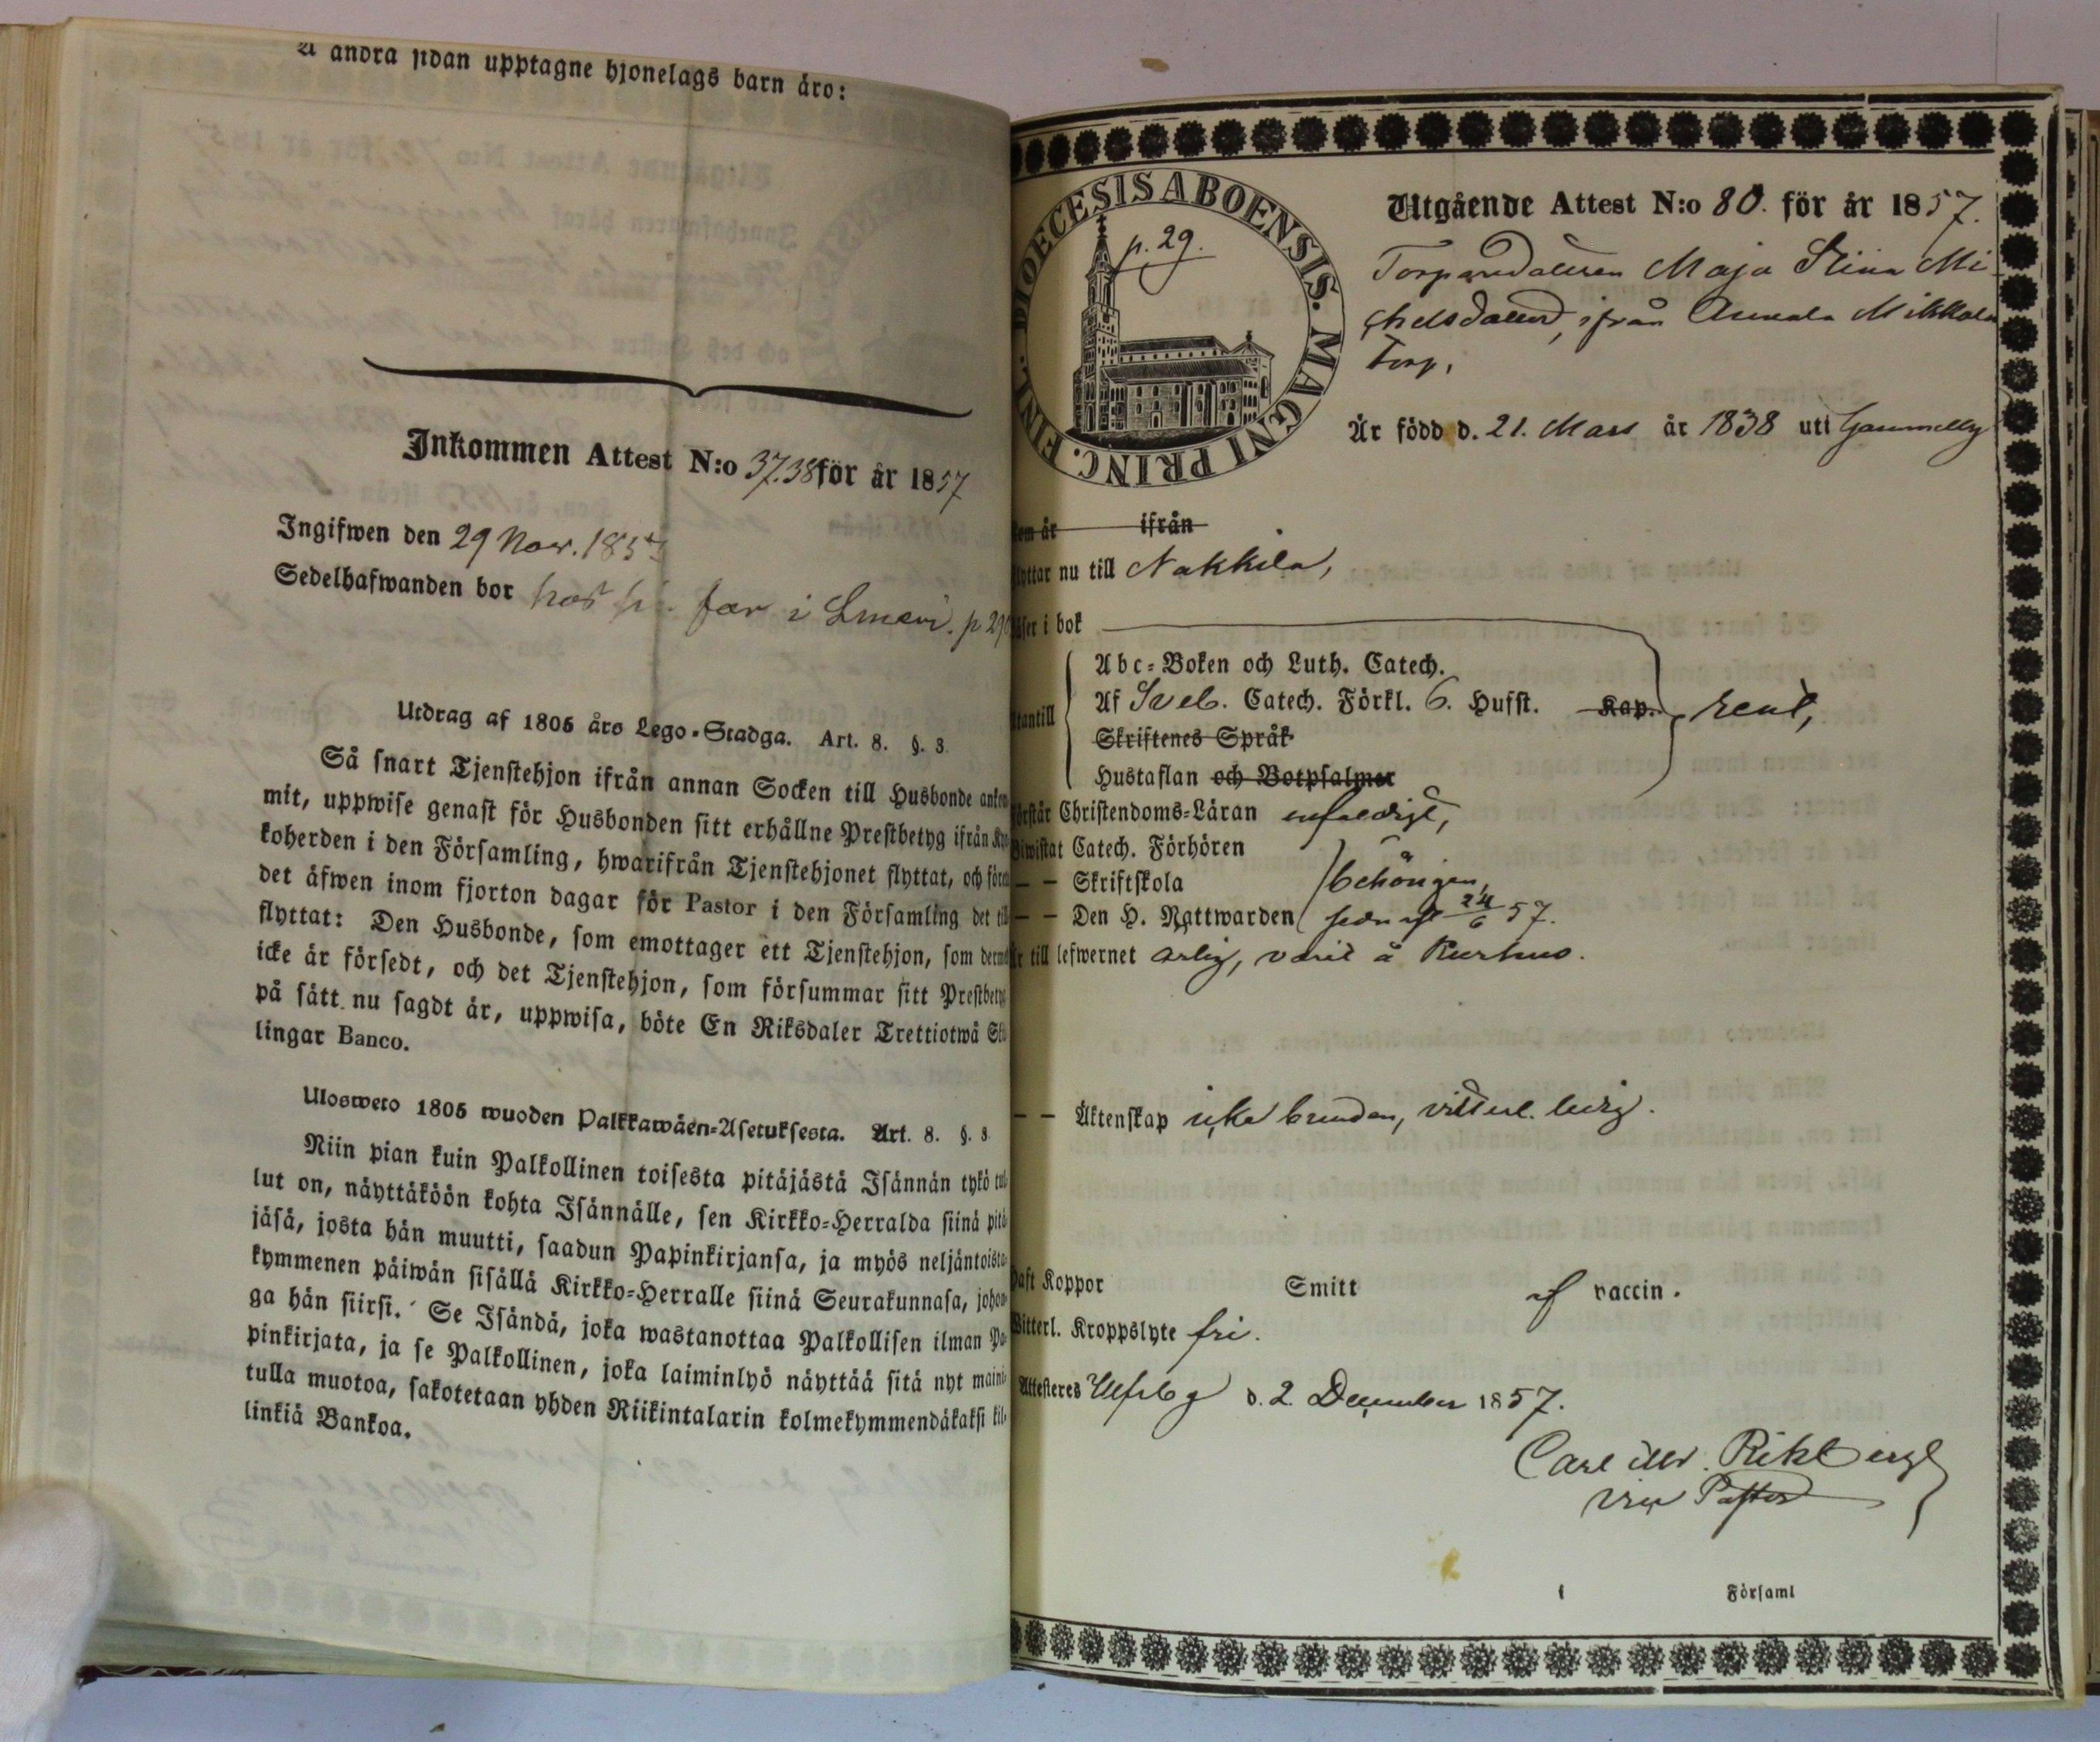 A andra sidan upptagne hjonelags barn äro:
Inkommen Attest N:o 37.38 för år 1857
Ingifwen den 29 Nov. 1857
Sedelhafwanden bor hos far i p 290
Utdrag af 1805 års Lego-Stadga. Art. 8. §. 3
Så snart Tjenstehjon ifrån annan Socken till Husbonde ankom
mit, uppwise genast för Husbonden sitt erhållne Prestbetyg ifrån Kyr
koherden i den Församling, hwarifrån Tjenstehjonet flyttat, och före
det äfwen inom fjorton dagar för Pastor i den Församling det till
flyttat: Den Husbonde, som emottager ett Tjenstehjon, som dermed
icke är försedt, och det Tjenstehjon, som försummar sitt Prestbetyg
på sätt nu sagdt är, uppwisa, böte En Riksdaler Trettiotwå Skil
lingar Banco.
Ulosweto 1805 wuoden Palkkawäen-Asetuksesta. Art. 8. §. 3
Niin pian kuin Palkollinen toisesta pitäjästä Isännän tykö tul
lut on, näyttäköön kohta Isännälle, sen Kirkko-Herralda siinä pitä
jäsä, josta hän muutti, saadun Papinkirjansa, ja myös neljäntoista
kymmenen päiwän sisällä Kirkko-Herralle siinä Seurakunnasa, johon
ga hän siirsi. Se Isändä, joka wastanottaa Palkollisen ilman Pa
pinkirjata, ja se Palkollinen, joka laiminlyö näyttää sitä nyt maini
tulla muotoa, sakotetaan yhden Riikintalarin kolmekymmendäkaksi kil
linkiä Bankoa.
DIOECESIS ABOENSIS. MAGNI PRINC. FINL.
p. 29.
Utgående Attest N:o 80. för år 1857.
Torparedottren Maja Stina Mi-
chelsdotter, ifrån Annala Mikkola
Torp,
Är född d. 21. Mars år 1838 uti Gammelby
som är ifrån
flyttar nu till Nakkila,
läser i bok
utantill
Abc-Boken och Luth. Catech.
Af Sveb. Catech. Förkl. 6. Hufst. Kap. rent,
Skriftenes Språk
Hustaflan och Botpsalmer
Förstår Christendoms-Läran enfaldigt,
Biwistat Catech. Förhören
— — Skriftskola behörigen,
— — Den H. Nattwarden sedn. 24/6 57.
Är till lefwernet ärlig, varit å Kurhus.
— — Äktenskap icke bunden, vitterl. ledig.
Haft Koppor Smitt af vaccin.
Witterl. Kroppslyte fri.
Attesteres Ulfsby d. 2. December 1857.
Carl
Vice Pastor
i Församl